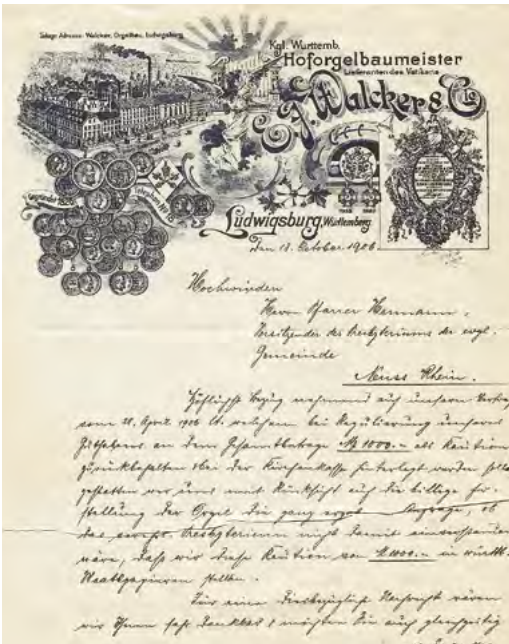 Telegr. Adresse: Walcker, Orgelbau, Ludwigsburg
Kgl. Württemb.
Hoforgelbaumeister
Lieferanten des Vatikans
E.F. Walcker & Cie
Ludwigsburg, Württemberg
den 18. October 1906
Hochwürden
Herrn Pfarrer Hermann,
Vorsitzender des Presbyteriums der evgl.
Gemeinde
Neuss Rhein.
Höflichst Bezug nehmend auf unseren Vertrag
vom 28. April 1906 lt. welchem bei Regulierung unseres
Guthabens an dem Gesamtbetrage M 1000.- als Kaution
zurückbehalten & bei der Kirchenkasse hinterlegt werden soll,
gestatten wir uns mit Rücksicht auf die billige Er-
stellung der Orgel die ganz ergeb. Anfrage, ob
das verehrl. Presbyterium nicht damit einverstanden
wäre, daß wir diese Kaution von M 1000.- in württ.
Staatspapieren stellen.
Für eine diesbezügliche Nachricht wären
wir Ihnen sehr dankbar & möchten Sie auch gleichzeitig